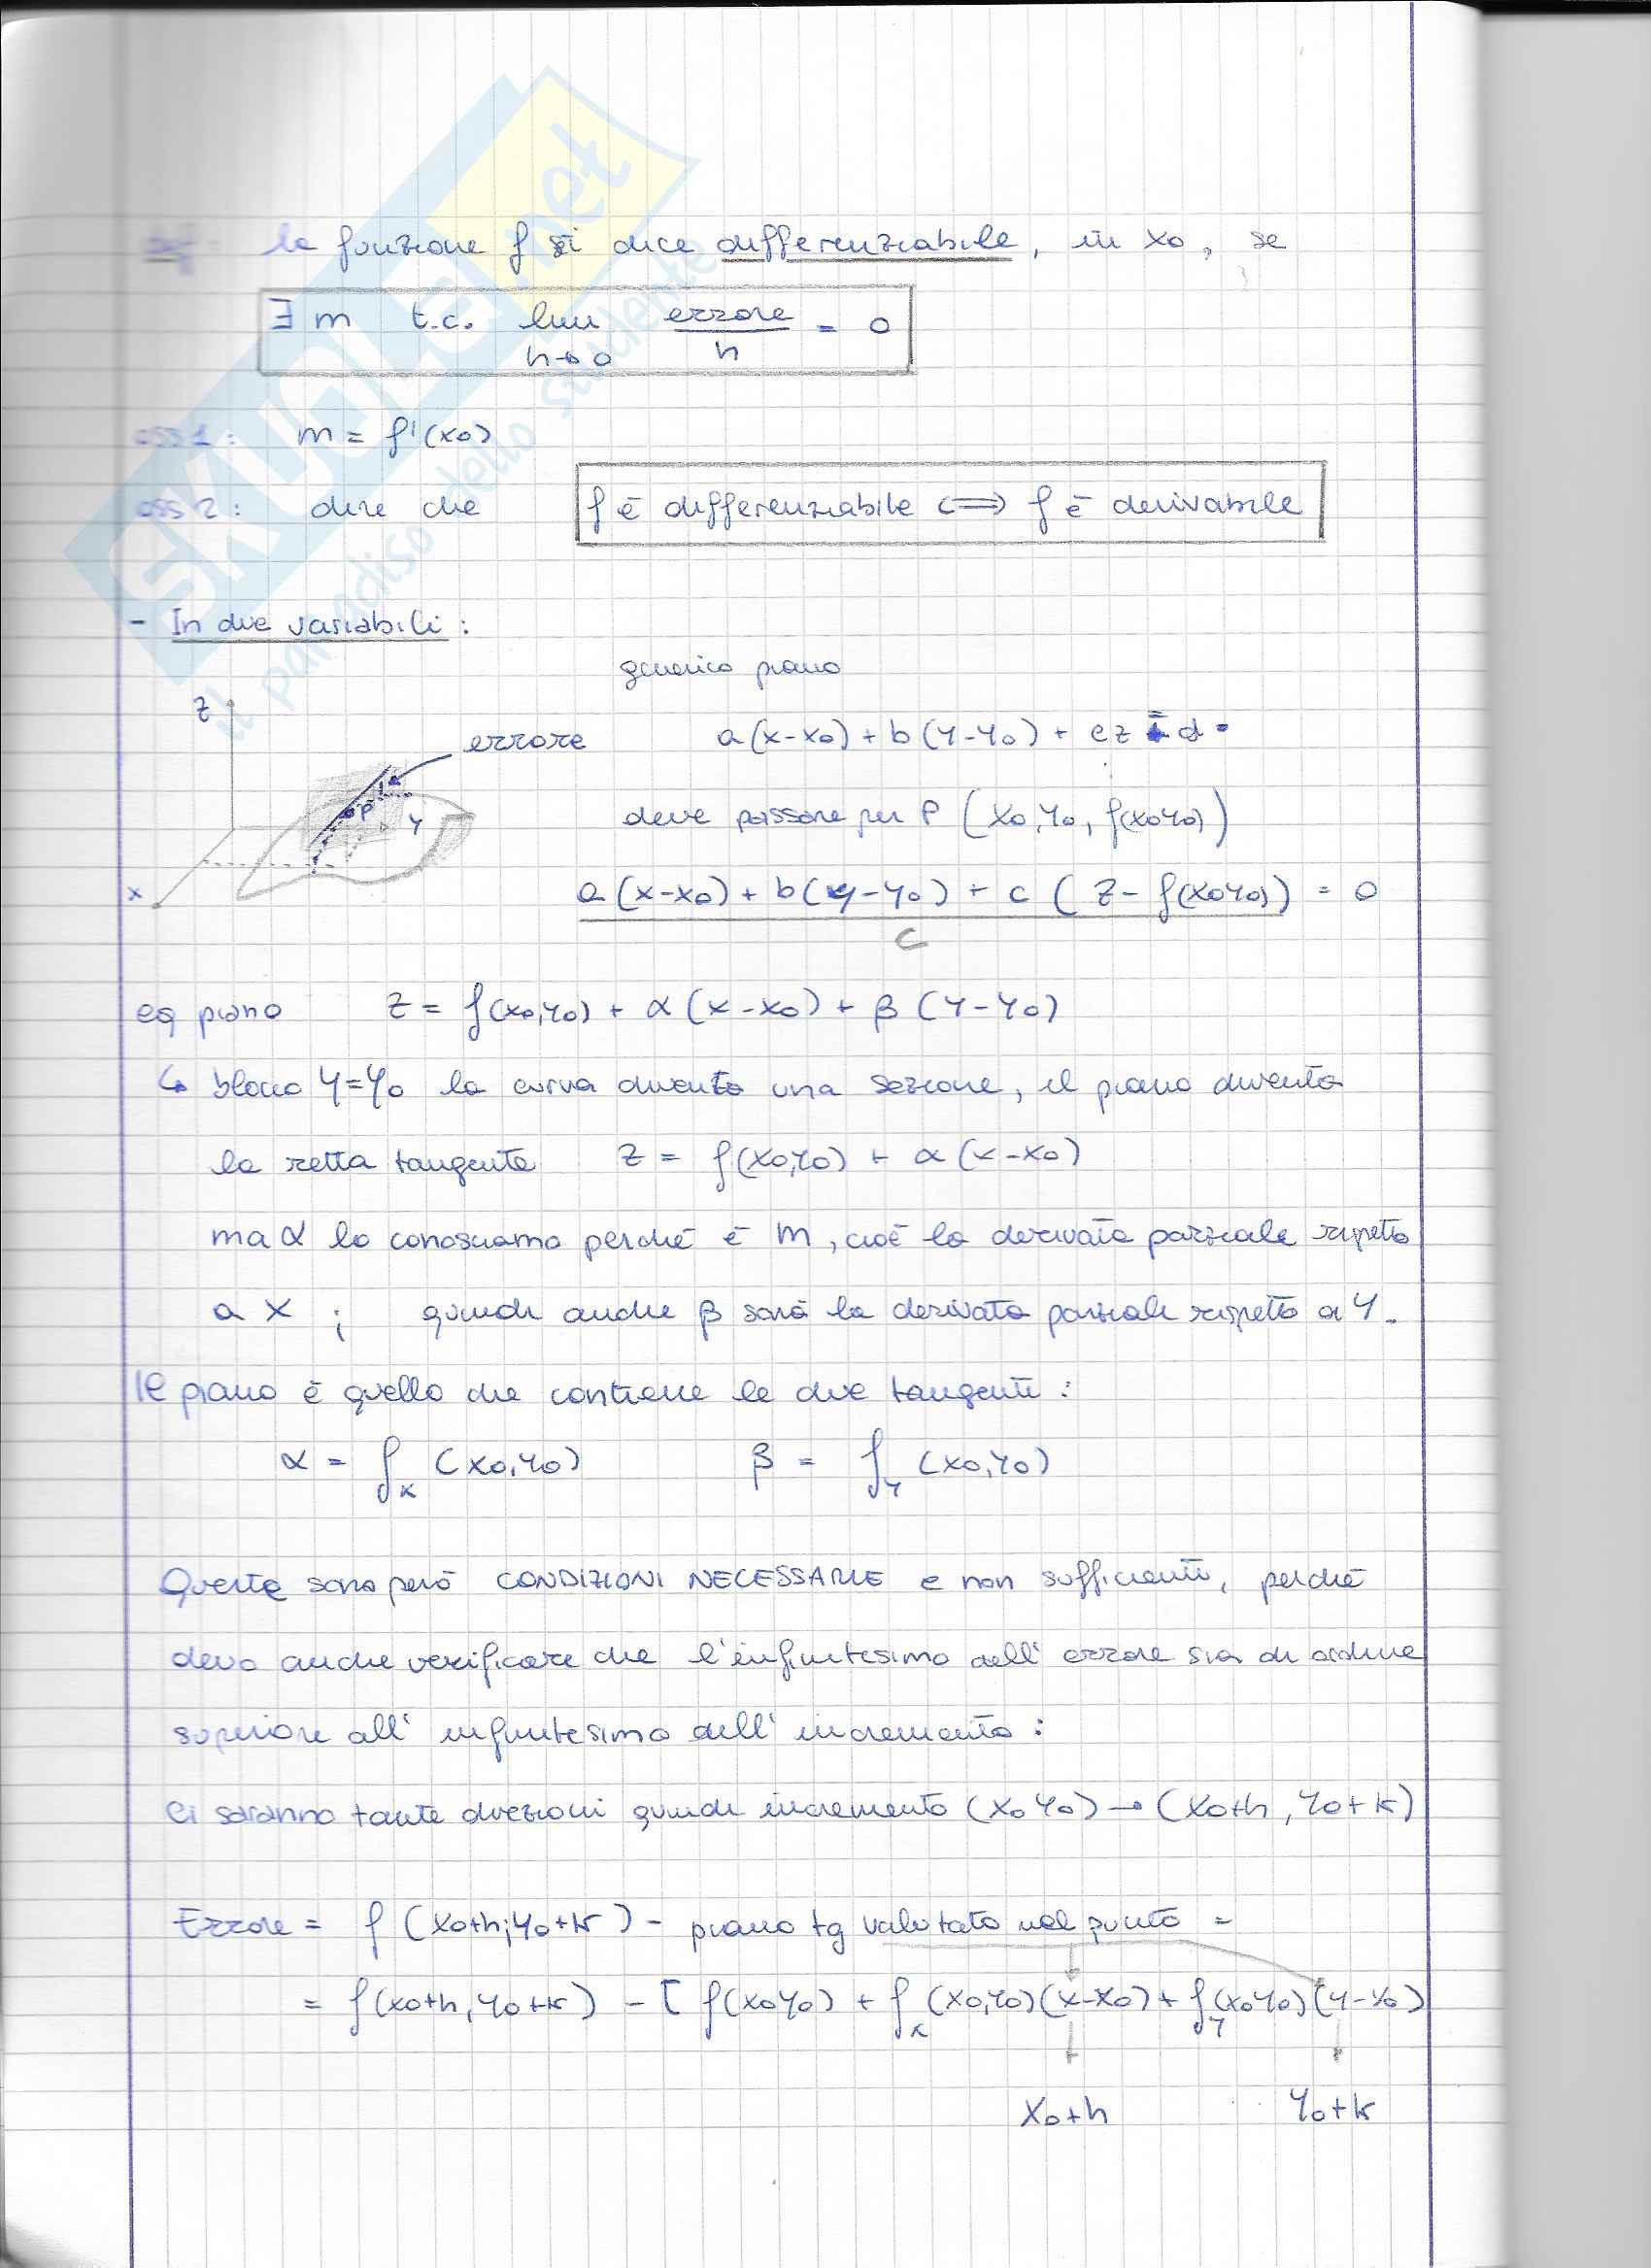 Def: la funzione f si dice differenziabile, in x0, se
∃ m t.c. lim h→0 errore/h = 0
oss 1: m = f'(x0)
oss 2: dire che f è differenziabile <=> f è derivabile
- In due variabili:
generico piano
z
errore
a(x-x0) + b(y-y0) + cz = d
P
y
deve passare per P (x0,y0, f(x0y0))
x
a(x-x0) + b(y-y0) + c (z - f(x0y0)) = 0
c
eq piano z = f(x0,y0) + α(x-x0) + β(y-y0)
↳ blocco y=y0 la curva diventa una sezione, il piano diventa
la retta tangente z = f(x0,y0) + α(x-x0)
ma α lo conosciamo perché è m, cioè la derivata parziale rispetto
a x ; quindi anche β sarà la derivata parziale rispetto a y.
Il piano è quello che contiene le due tangenti:
α = fx (x0,y0) β = fy (x0,y0)
Queste sono però CONDIZIONI NECESSARIE e non sufficienti, perché
devo anche verificare che l'infinitesimo dell'errore sia di ordine
superiore all'infinitesimo dell'incremento:
Ci saranno tante direzioni quindi incremento (x0y0) → (x0+h, y0+k)
Errore = f(x0+h; y0+k) - piano tg valutato nel punto =
= f(x0+h, y0+k) - [f(x0y0) + fx(x0,y0)(x-x0) + fy(x0y0)(y-y0)
x0+h y0+k
SKUOLA.net
il paradiso dello studente